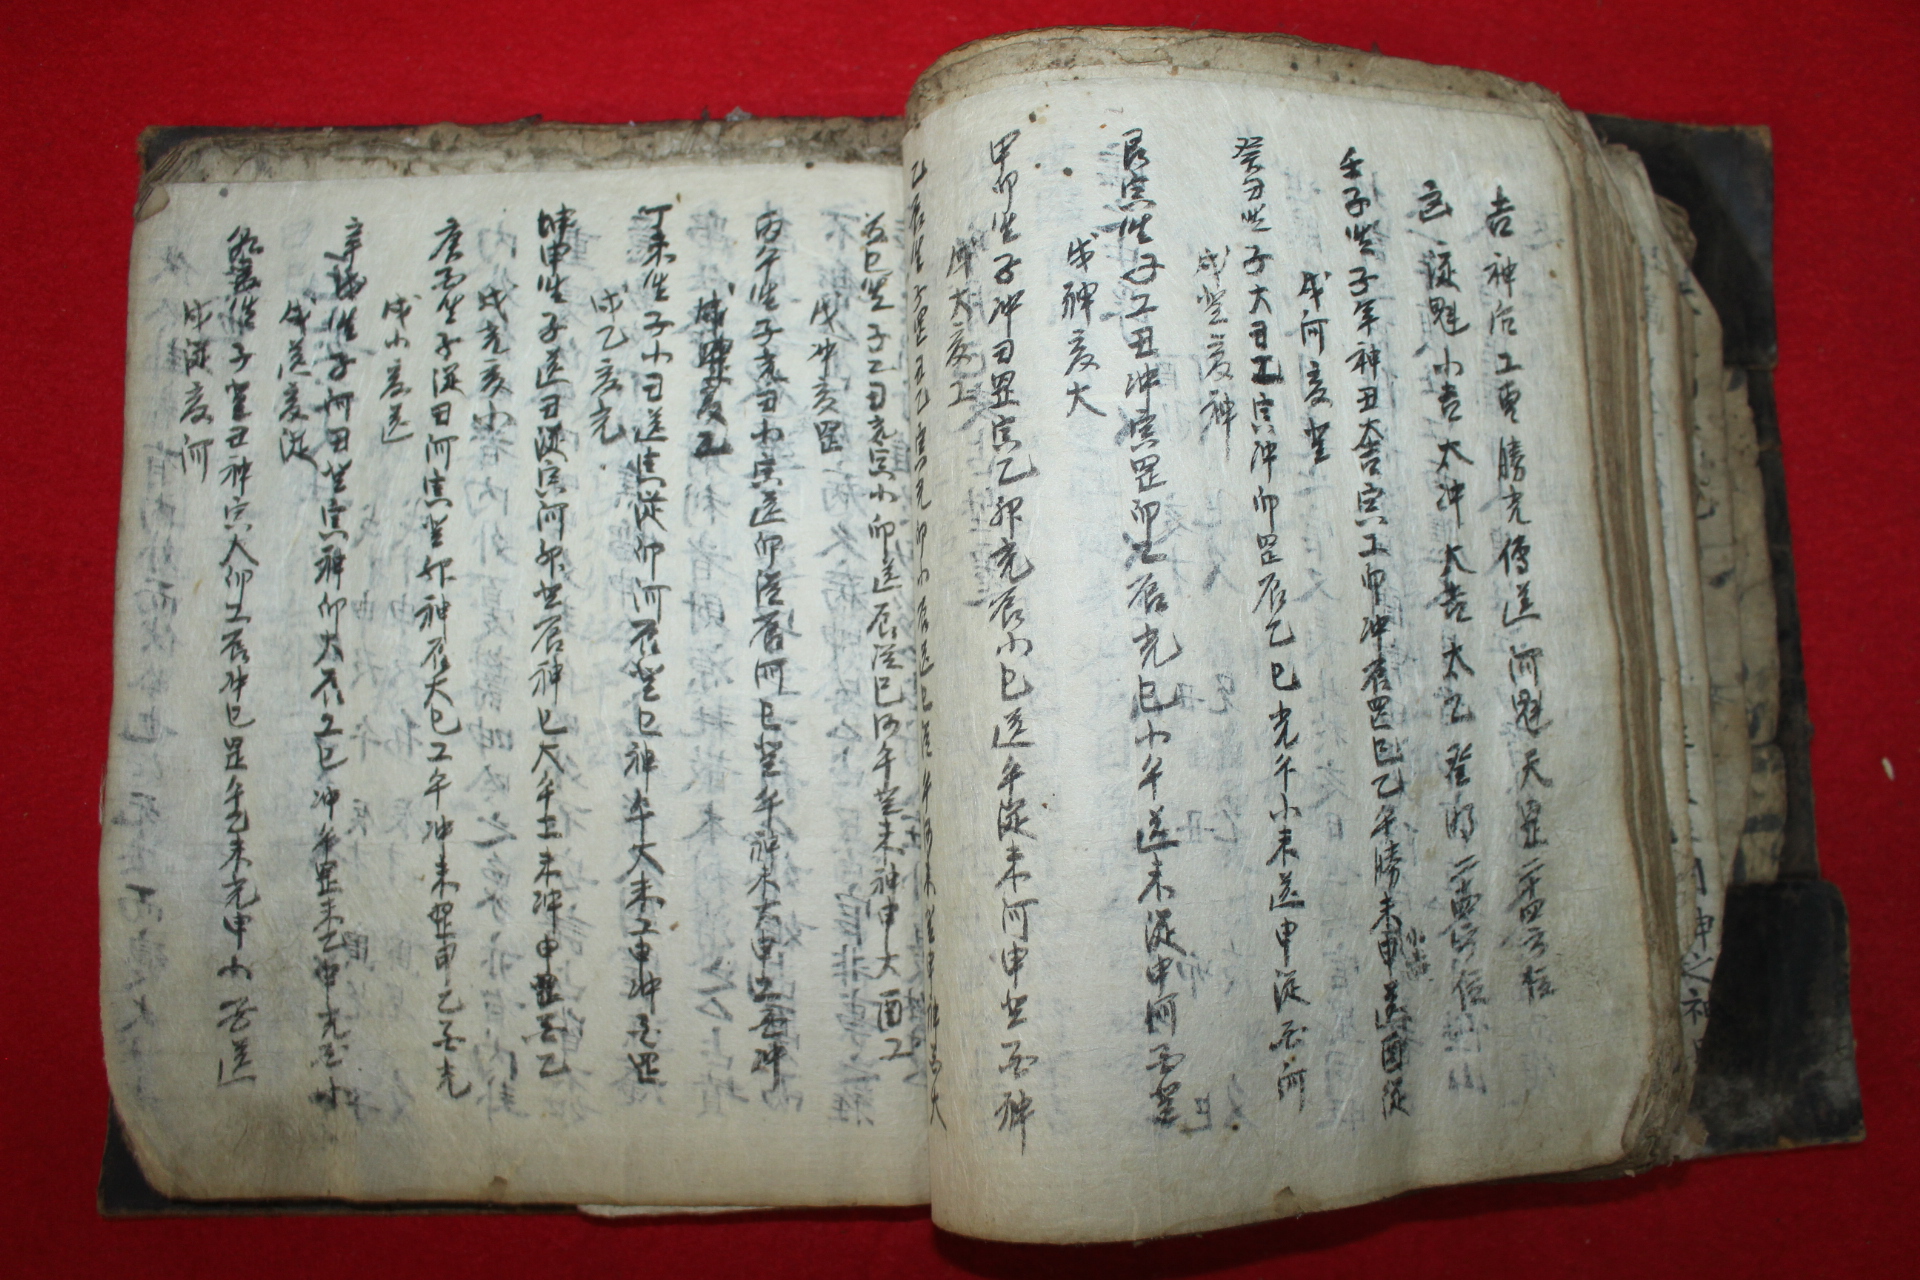 吉 神后 工曺 勝光 傳送 河魁 天罡 二十四方位
凶 從魁 小吉 太冲 大吉 太乙 登明 二十四方位
壬子坐 子年神丑大吉寅工卯冲辰罡巳乙午勝未小吉申送酉從
戌河亥登
癸丑坐子大丑工寅冲卯罡辰乙巳光午小未送申從酉河
戌登亥神
艮寅坐子工丑冲寅罡卯乙辰光巳小午送未從申河酉登
戌神亥大
甲卯坐子冲丑罡寅乙卯光辰小巳送午從未河申登酉神
戌大亥工
乙辰坐子罡丑乙寅光卯小辰送巳從午河未登申神酉大
巽巳坐子乙丑光寅小卯送辰從巳河午登未神申大酉工
戌冲亥罡
丙午坐子光丑小寅送卯從辰河巳登午神未大申工酉冲
戌罡亥乙
丁未坐子小丑送寅從卯河辰登巳神午大未工申冲酉罡
戌乙亥光
坤申坐子送丑從寅河卯登辰神巳大午工未冲申罡酉乙
戌光亥小
庚酉坐子從丑河寅登卯神辰大巳工午冲未罡申乙酉光
戌小亥送
辛戌坐子河丑登寅神卯大辰工巳冲午罡未乙申光酉小
戌送亥從
乾亥坐子登丑神寅大卯工辰冲巳罡午乙未光申小酉送
戌從亥河